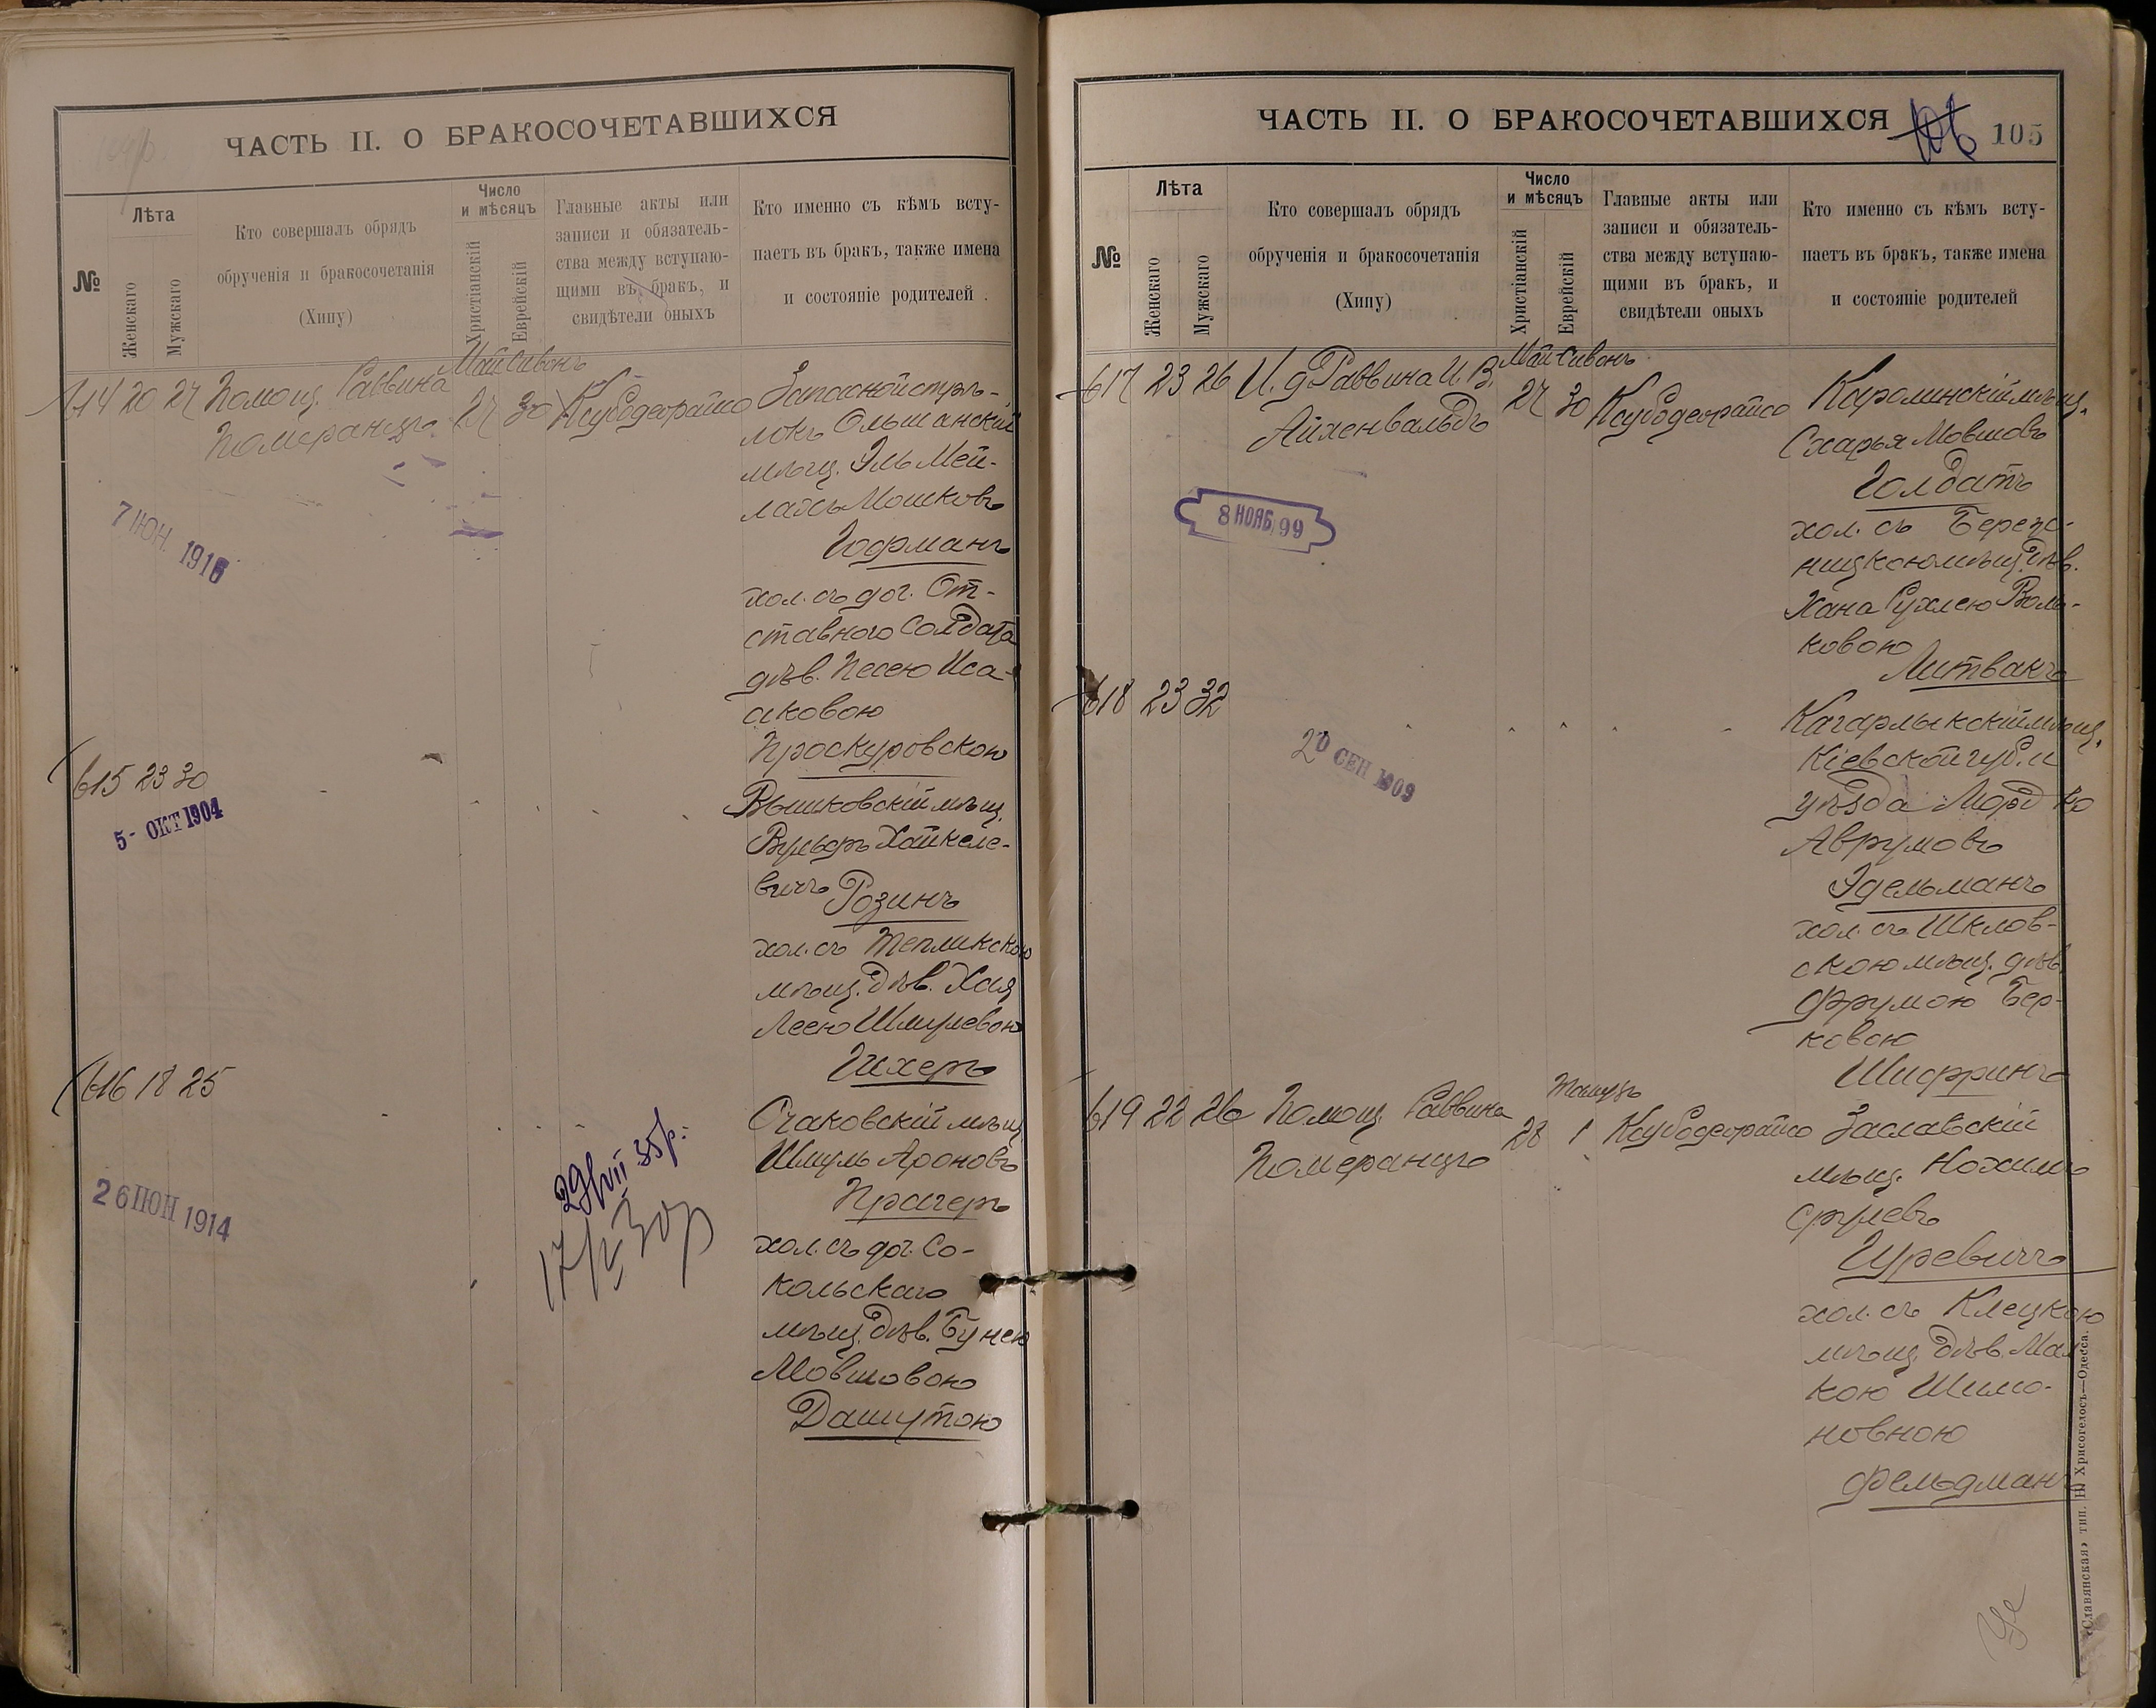 ЧАСТЬ II. О БРАКОСОЧЕТАВШИХСЯ
№
Лѣта
Женскаго
Мужскаго
Кто совершалъ обрядъ
обрученія и бракосочетанія
(Хипу)
Число
и мѣсяцъ
Христіанскій
Еврейскій
Главные акты или
записи и обязатель-
ства между вступаю-
щими въ бракъ, и
свидѣтели оныхъ
Кто именно съ кѣмъ всту-
паетъ въ бракъ, также имена
и состояніе родителей
Май Сивонъ
614 20 27 Помощ. Раввина
Померанцъ
27 30
Запасной стрѣ-
локъ Ольшанскій
мѣщ. Эль Мей-
лахъ Мошковъ
Гофманъ
хол. съ доч. От-
ставного Солдата
дѣв. Песею Иса-
аковою
Проскуровскою
7 ІЮН. 1916
615 23 30
5- ОКТ 1904
Вышковскій мѣщ.
Вульфъ Хайкеле-
вичъ Розинъ
хол. съ Тепликскою
мѣщ. дѣв. Хая
Леею Шмулевою
Гихеръ
616 18 25
26 ІЮН 1914
29/VIII 35р.
Очаковскій мѣщ
Шмуль Ароновъ
Прагеръ
хол. съ доч. Со-
кольскаго
мѣщ. дѣв. Бунею
Мовшовою
Дашутою
ЧАСТЬ II. О БРАКОСОЧЕТАВШИХСЯ
105
№
Лѣта
Женскаго
Мужскаго
Кто совершалъ обрядъ
обрученія и бракосочетанія
(Хипу)
Число
и мѣсяцъ
Христіанскій
Еврейскій
Главные акты или
записи и обязатель-
ства между вступаю-
щими въ бракъ, и
свидѣтели оныхъ
Кто именно съ кѣмъ всту-
паетъ въ бракъ, также имена
и состояніе родителей
Май Сивонъ
617 23 26 И. д Раввина И. В.
Айхенвальдъ
27 30
Каролинскій мѣщ.
Схарья Мовшовъ
Голдатъ
хол. съ Берез-
ницкою мѣщ. дѣв.
Хана Рухлею Воль-
ковою
Литвакъ
8 НОЯБ 99
618 23 32
20 СЕН 1909
Кагарлыкскій мѣщ.
Кіевской губ. и
уѣзда Мордко
Аврумовъ
Эдельманъ
хол. съ Шклов-
скою мѣщ. дѣв.
Фрумою Бер-
ковою
Шифринъ
Тамузъ
619 22 26 Помощ. Раввина
Померанцъ
28 1
Заславскій
мѣщ. Нохимъ
Срулевъ
Гуревичъ
хол. съ Клецкою
мѣщ. дѣв. Мал
кою Шимо-
новною
Фельдманъ
«Славянская» тип. Н. Хрисогелосъ—Одесса.